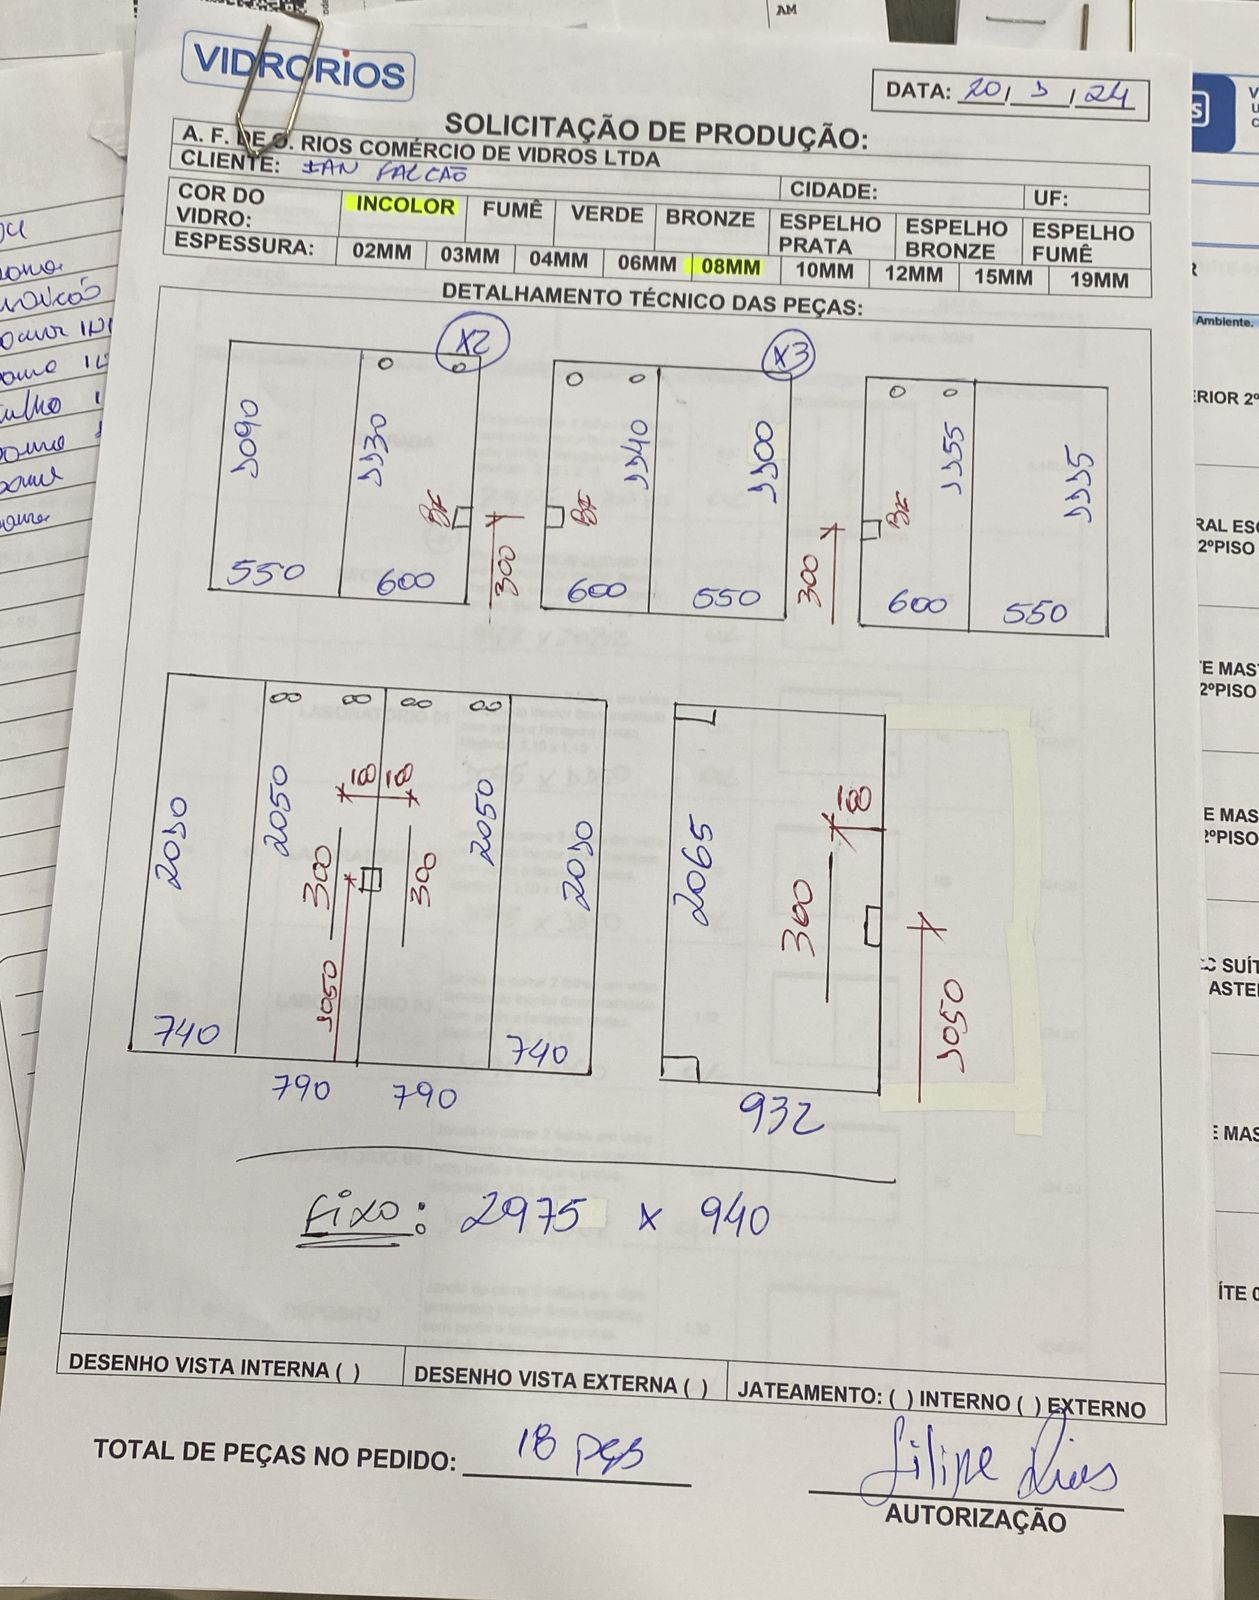 AM
VIDRORIOS
DATA: 20/ 5 /24
SOLICITAÇÃO DE PRODUÇÃO:
A. F. DE O. RIOS COMÉRCIO DE VIDROS LTDA
CLIENTE: IAN FALCÃO CIDADE: UF:
COR DO VIDRO: INCOLOR FUMÊ VERDE BRONZE ESPELHO PRATA ESPELHO BRONZE ESPELHO FUMÊ
ESPESSURA: 02MM 03MM 04MM 06MM 08MM 10MM 12MM 15MM 19MM
DETALHAMENTO TÉCNICO DAS PEÇAS:
X2 X3
1090 1130 1140 1100 1155 1115
BF BF BF
300 300
550 600 600 550 600 550
2010 2050 2050 2010 2065
300 300 300
1050 1050
740 740
790 790 932
Fixo: 2975 x 940
DESENHO VISTA INTERNA ( ) DESENHO VISTA EXTERNA ( ) JATEAMENTO: ( ) INTERNO ( ) EXTERNO
TOTAL DE PEÇAS NO PEDIDO: 18 pçs
Filipe Rios
AUTORIZAÇÃO
Ambiente.
2ºPISO
2ºPISO